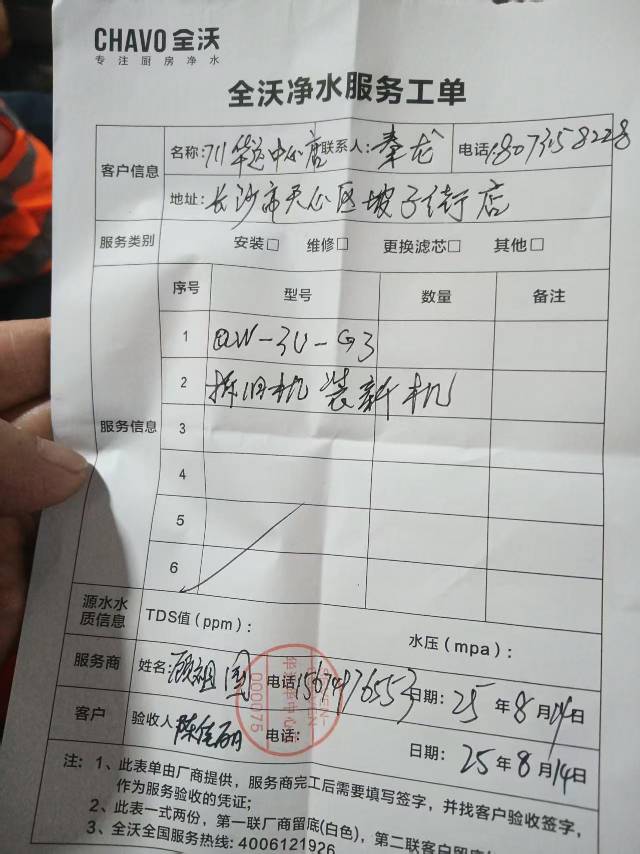 CHAVO 全沃
专注厨房净水
全沃净水服务工单
客户信息 名称: 711华远中心店 联系人: 秦龙 电话: 18073158228
地址: 长沙市天心区坡子街店
服务类别 安装□ 维修□ 更换滤芯□ 其他□
服务信息 序号 型号 数量 备注
1 QW-3U-G3
2 拆旧机装新机
3
4
5
6
源水水质信息 TDS值(ppm): 水压(mpa):
服务商 姓名: 顾祖国 电话: 15674976553 日期: 25年8月14日
客户 验收人 电话: 日期: 25年8月14日
000075
注: 1、此表单由厂商提供，服务商完工后需要填写签字，并找客户验收签字，
作为服务验收的凭证;
2、此表一式两份，第一联厂商留底(白色)，第二联客户留底
3、全沃全国服务热线: 4006121926